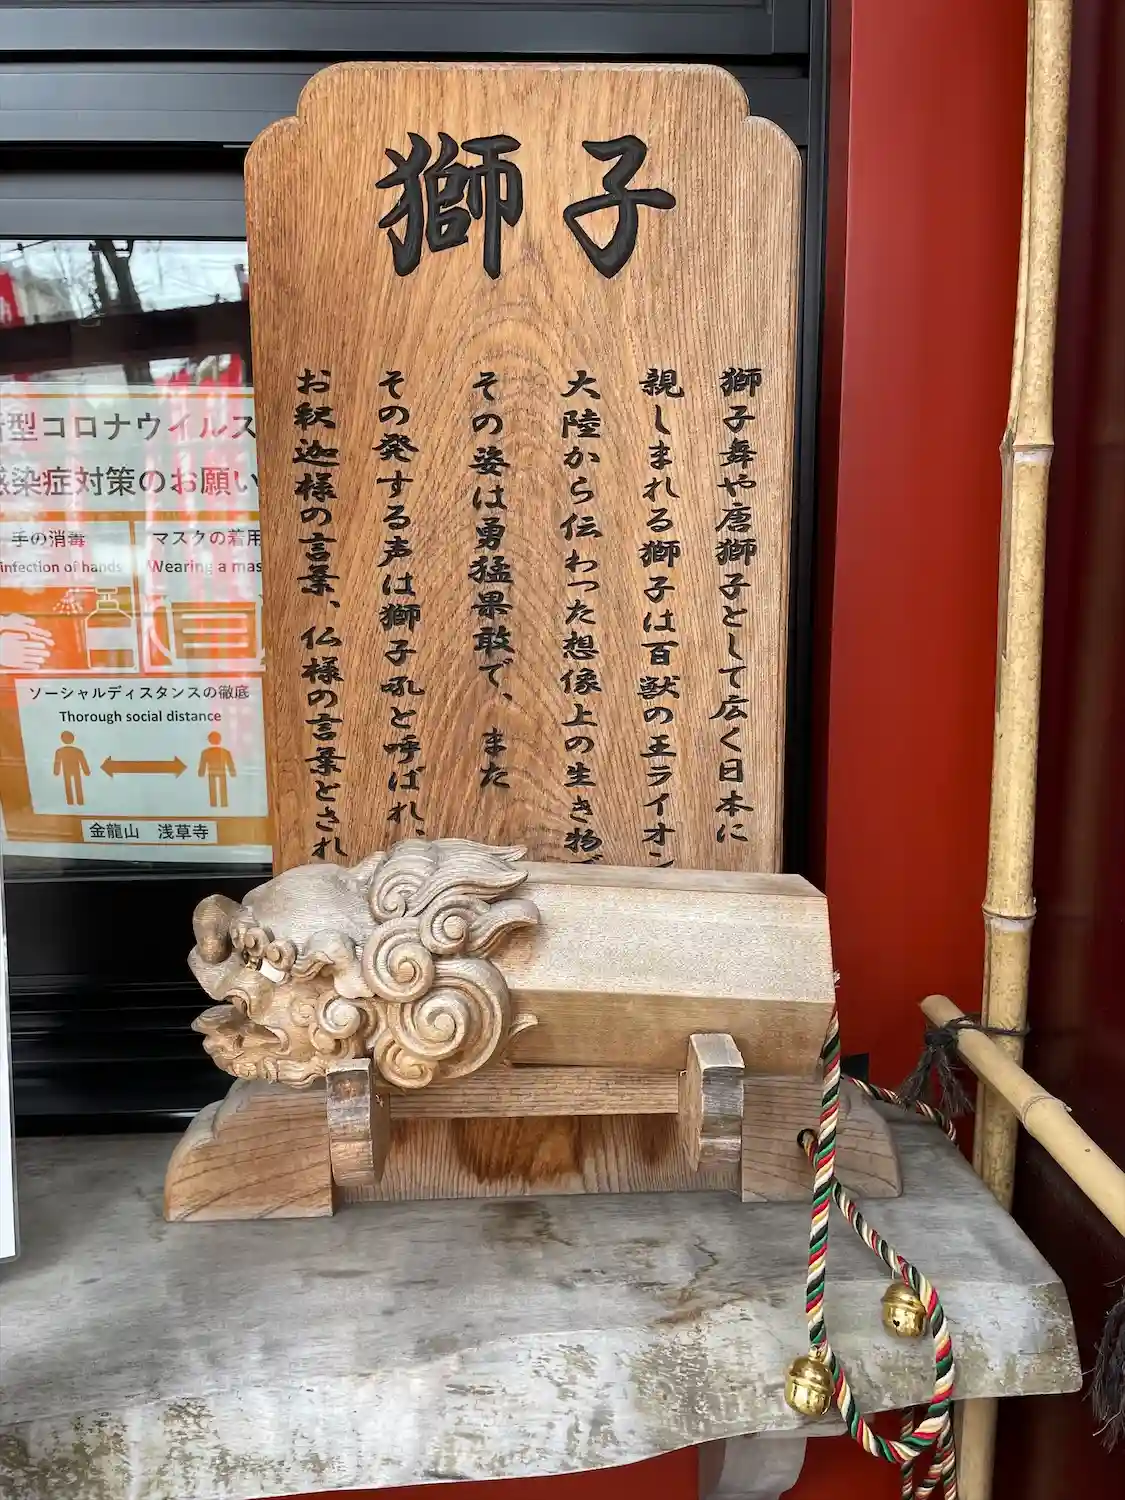 獅子
獅子舞や唐獅子として広く日本に
親しまれる獅子は百獣の王ライオン
大陸から伝わった想像上の生き物で
その姿は勇猛果敢で、また
その発する声は獅子吼と呼ばれ、
お釈迦様の言葉、仏様の言葉とされ
型コロナウイルス
感染症対策のお願い
手の消毒
infection of hands
マスクの着用
Wearing a mas
ソーシャルディスタンスの徹底
Thorough social distance
金龍山 浅草寺